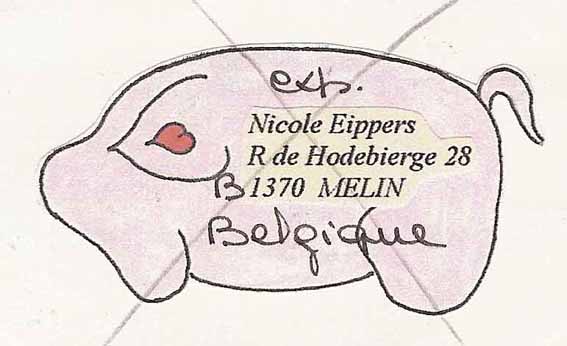 exp.
Nicole Eippers
R de Hodebierge 28
B 1370 MELIN
Belgique